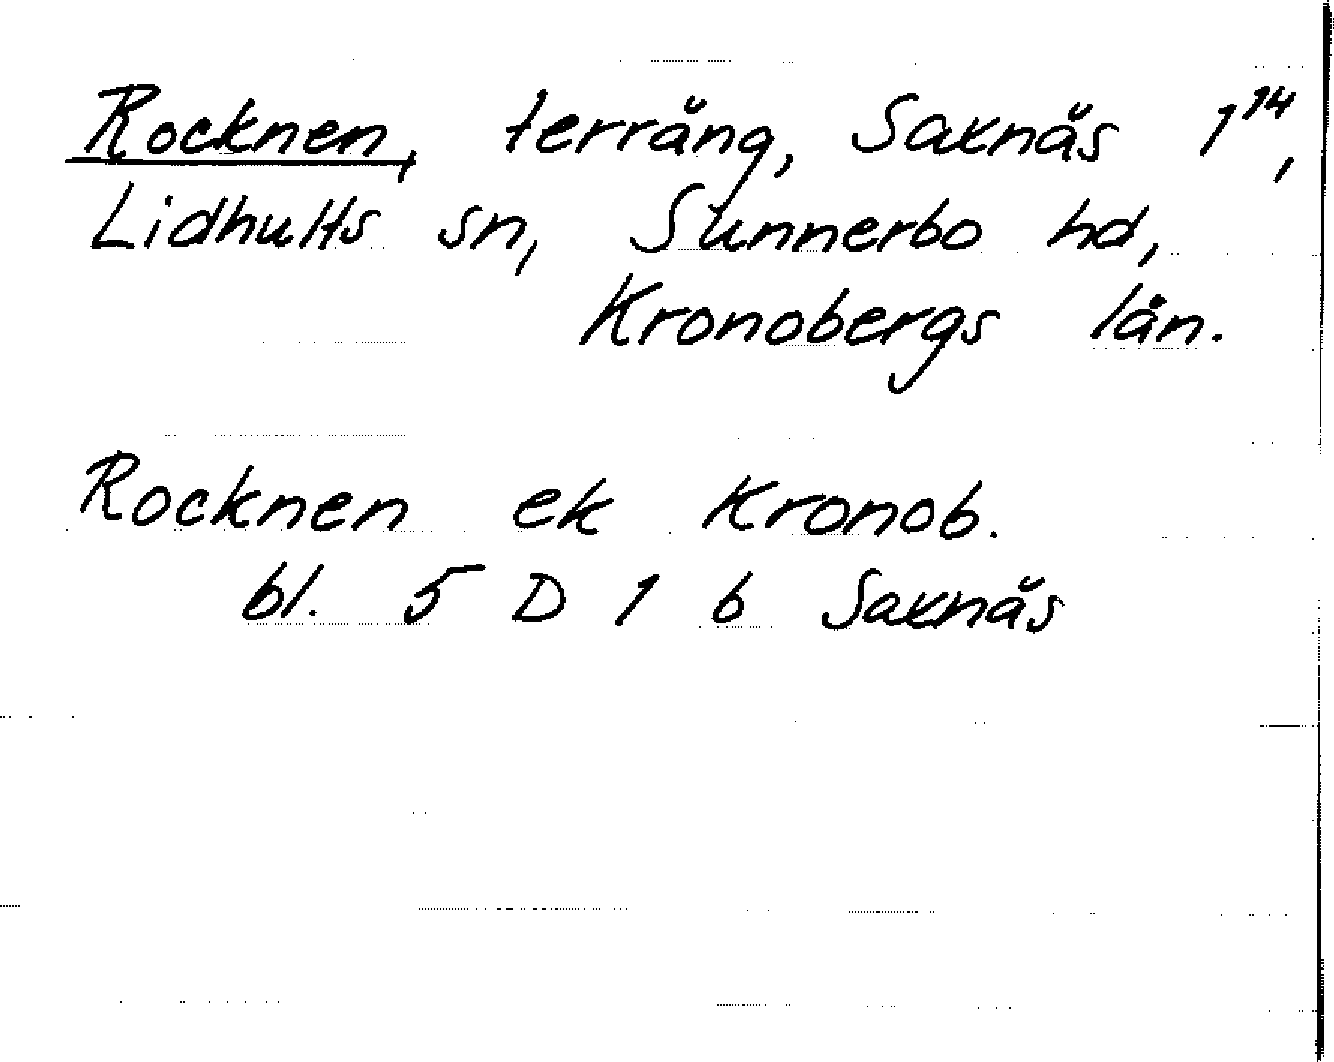 Rocknen, terräng, Saxnäs 1¹⁴,
Lidhults sn, Sunnerbo hd,
Kronobergs län.
Rocknen ek Kronob.
bl. 5 D 1 b Saxnäs